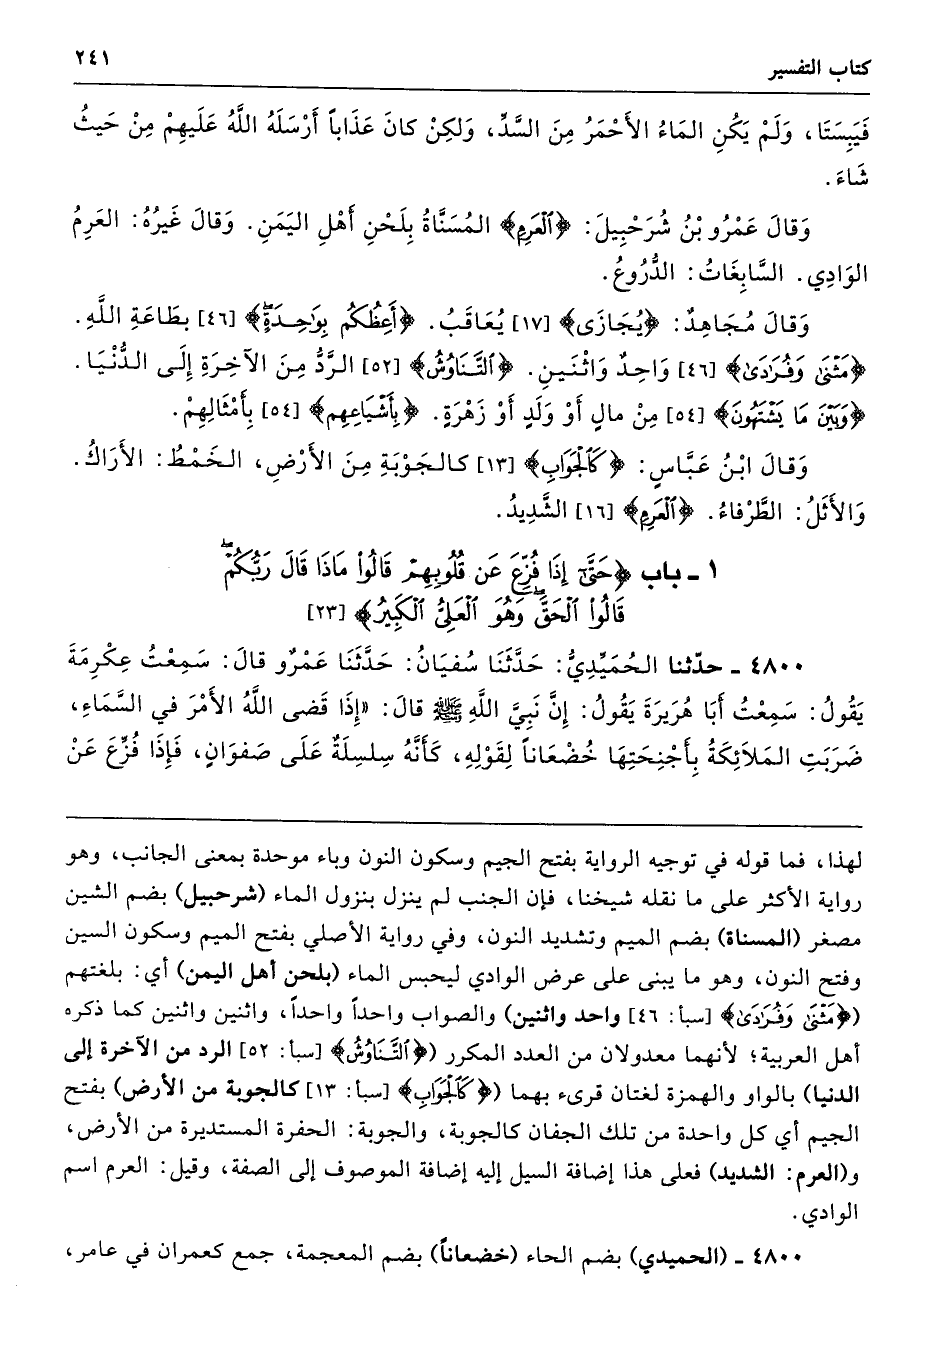 كتاب التفسير
٢٤١
فَيَبِسَتَا، وَلَمْ يَكُنِ المَاءُ الأَحْمَرُ مِنَ السَّدِّ، وَلكِنْ كانَ عَذَاباً أَرْسَلَهُ اللَّهُ عَلَيهِمْ مِنْ حَيثُ
شَاءَ.
وَقالَ عَمْرُو بْنُ شُرَحْبِيلَ: ﴿ٱلْعَرِمِ﴾ المُسَنَّاةُ بِلَحْنِ أَهْلِ اليَمَنِ. وَقالَ غَيرُهُ: العَرِمُ
الوَادِي. السَّابِغَاتُ: الدُّرُوعُ.
وَقالَ مُجَاهِدٌ: ﴿يُجَازَى﴾ [١٧] يُعَاقَبُ. ﴿أَعِظُكُم بِوَاحِدَةٍ﴾ [٤٦] بِطَاعَةِ اللَّهِ.
﴿مَثْنَىٰ وَفُرَٰدَىٰ﴾ [٤٦] وَاحِدٌ وَاثْنَينِ. ﴿ٱلتَّنَاوُشُ﴾ [٥٢] الرَّدُّ مِنَ الآخِرَةِ إِلَى الدُّنْيَا.
﴿وَبَيْنَ مَا يَشْتَهُونَ﴾ [٥٤] مِنْ مالٍ أَوْ وَلَدٍ أَوْ زَهْرَةٍ. ﴿بِأَشْيَاعِهِم﴾ [٥٤] بِأَمْثَالِهِمْ.
وَقالَ ابْنُ عَبَّاسٍ: ﴿كَٱلْجَوَابِ﴾ [١٣] كالجَوْبَةِ مِنَ الأَرْضِ، الخَمْطُ: الأَرَاكُ.
وَالأَثْلُ: الطَّرْفاءُ. ﴿ٱلْعَرِمِ﴾ [١٦] الشَّدِيدُ.
١ ـ باب ﴿حَتَّىٰٓ إِذَا فُزِّعَ عَن قُلُوبِهِمْ قَالُوا۟ مَاذَا قَالَ رَبُّكُمْۖ
قَالُوا۟ ٱلْحَقَّۖ وَهُوَ ٱلْعَلِىُّ ٱلْكَبِيرُ﴾ [٢٣]
٤٨٠٠ ـ حدّثنا الحُمَيْدِيُّ: حَدَّثَنَا سُفيَانُ: حَدَّثَنَا عَمْرٌو قالَ: سَمِعْتُ عِكْرِمَةَ
يَقُولُ: سَمِعْتُ أَبَا هُرَيرَةَ يَقُولُ: إِنَّ نَبِيَّ اللَّهِ ﷺ قالَ: «إِذَا قَضى اللَّهُ الأَمْرَ في السَّمَاءِ،
ضَرَبَتِ المَلاَئِكَةُ بِأَجْنِحَتِهَا خُضْعَاناً لِقَوْلِهِ، كَأَنَّهُ سِلسِلَةٌ عَلَى صَفوَانٍ، فَإِذَا فُزِّعَ عَنْ
لهذا، فما قوله في توجيه الرواية بفتح الجيم وسكون النون وباء موحدة بمعنى الجانب، وهو
رواية الأكثر على ما نقله شيخنا، فإن الجنب لم ينزل بنزول الماء (شرحبيل) بضم الشين
مصغر (المسناة) بضم الميم وتشديد النون، وفي رواية الأصلي بفتح الميم وسكون السين
وفتح النون، وهو ما يبنى على عرض الوادي ليحبس الماء (بلحن أهل اليمن) أي: بلغتهم
(﴿مَثْنَىٰ وَفُرَٰدَىٰ﴾ [سبأ: ٤٦] واحد واثنين) والصواب واحداً واحداً، واثنين واثنين كما ذكره
أهل العربية؛ لأنهما معدولان من العدد المكرر (﴿ٱلتَّنَاوُشُ﴾ [سبأ: ٥٢] الرد من الآخرة إلى
الدنيا) بالواو والهمزة لغتان قرىء بهما (﴿كَٱلْجَوَابِ﴾ [سبأ: ١٣] كالجوبة من الأرض) بفتح
الجيم أي كل واحدة من تلك الجفان كالجوبة، والجوبة: الحفرة المستديرة من الأرض،
و(العرم: الشديد) فعلى هذا إضافة السيل إليه إضافة الموصوف إلى الصفة، وقيل: العرم اسم
الوادي.
٤٨٠٠ ـ (الحميدي) بضم الحاء (خضعاناً) بضم المعجمة، جمع كعمران في عامر،